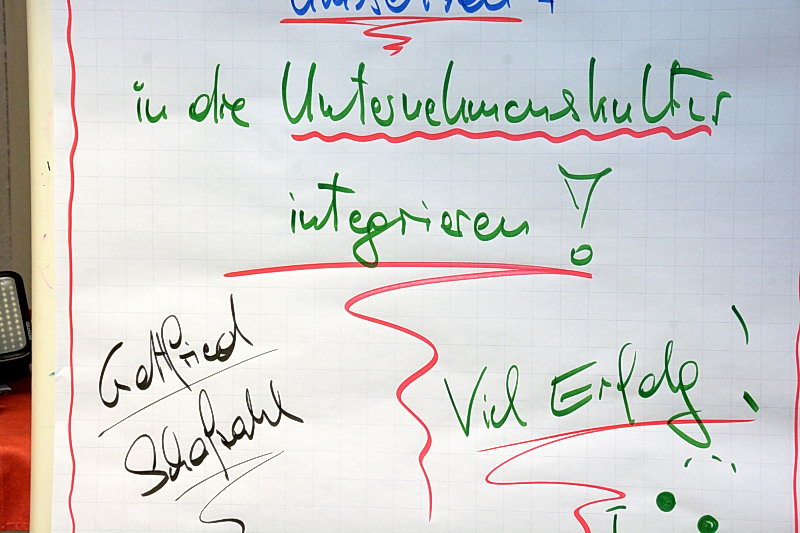 in die Unternehmenskultur
integrieren!
Gottfried
Viel Erfolg!